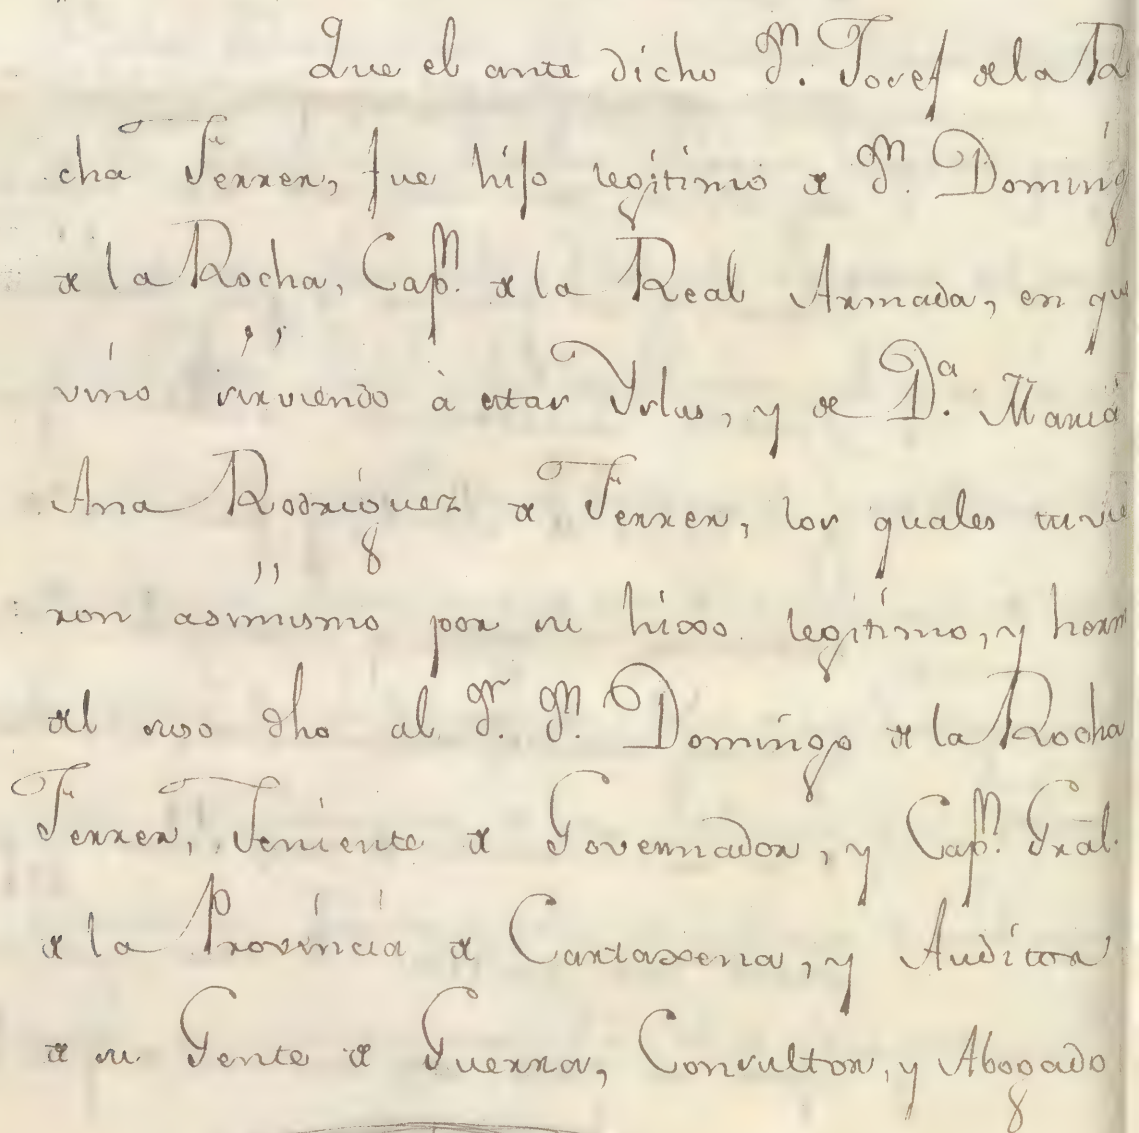 Que el ante dicho Dn. Josef de la Ro
cha Ferrer, fue hijo legitimo de Dn. Doming
de la Rocha, Capn. de la Real Armada, en que
vino sirviendo à estas Yslas, y de Da. Maria
Ana Rodriguez de Ferrer, los quales tuvie
ron asimismo por su hixo legitimo, y herm
del suso dho al Dr. Dn. Domingo de la Rocha
Ferrer, Teniente de Governador, y Capn. Gral.
de la Provincia de Cartaxena, y Auditor
de su Gente de Guerra, Consultor, y Abogado